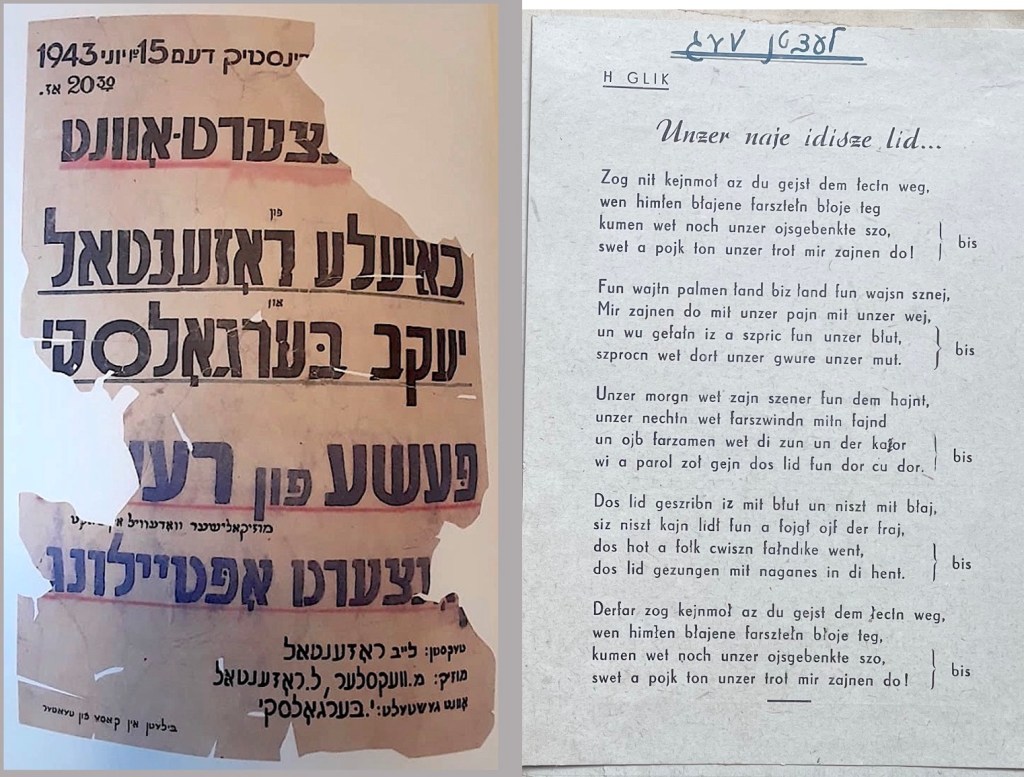 דינסטיק דעם 15טן יוני 1943
20³⁰ אז.
נצערט-אָוונט
פון
כאיעלע ראָזענטאל
און
יעקב בערגאָלסקי
פּעשע פון
מוזיקאלישער וואדעוויל
נצערט אָפּטיילונג
טעקסטן: לייב ראָזענטאל
מוזיק: מ. וועקסלער, ל. ראָזענטאל
אָוונט געשטעלט: י. בערגאָלסקי
בילעטן אין קאסע פון טעאטער
לעצטן וועג
H GLIK
Unzer naje idisze lid...
Zog nit kejnmoł az du gejst dem łectn weg,
wen himłen błajene farsztełn błoje teg
kumen wet noch unzer ojsgebenkte szo,
swet a pojk ton unzer trot mir zajnen do!
bis
Fun wajtn palmen łand biz łand fun wajsn sznej,
Mir zajnen do mit unzer pajn mit unzer wej,
un wu gefałn iz a szpric fun unzer błut,
szprocn wet dort unzer gwure unzer mut.
bis
Unzer morgn wet zajn szener fun dem hajnt,
unzer nechtn wet farszwindn mitn fajnd
un ojb farzamen wet di zun un der kajor
wi a parol zoł gejn dos lid fun dor cu dor.
bis
Dos lid geszribn iz mit błut un niszt mit błaj,
siz niszt kajn lidł fun a fojgł ojf der fraj,
dos hot a fołk cwiszn fałndike went,
dos lid gezungen mit naganes in di hent.
bis
Derfar zog kejnmoł az du gejst dem łectn weg,
wen himłen błajene farsztełn błoje teg,
kumen wet noch unzer ojsgebenkte szo,
swet a pojk ton unzer trot mir zajnen do!
bis